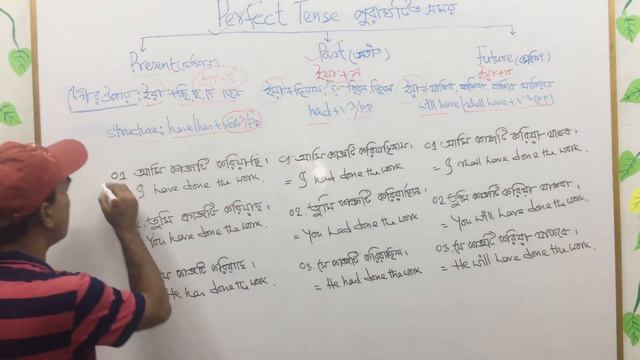 Perfect Tense পুরাঘটিত সময়
Present (বর্তমান)
Past (অতীত)
Future (ভবিষ্যৎ)
had + V3/pp
will have/shall have + V3 (pp)
structure: have/has +
01 আমি কাজটি করিয়াছি।
I have done the work.
তুমি কাজটি করিয়াছ।
You have done the work.
কাজটি করিয়াছে।
He has done the work.
01 আমি কাজটি করিয়াছিলাম।
= I had done the work.
02. তুমি কাজটি করিয়াছিলে।
= You had done the work.
03. সে কাজটি করিয়াছিল।
= He had done the work
01 আমি কাজটি করিয়া থাকব।
= I shall have done the work.
02. তুমি কাজটি করিয়া থাকবে।
= You will have done the work.
03. সে কাজটি করিয়া থাকবে।
= He will have done the work.